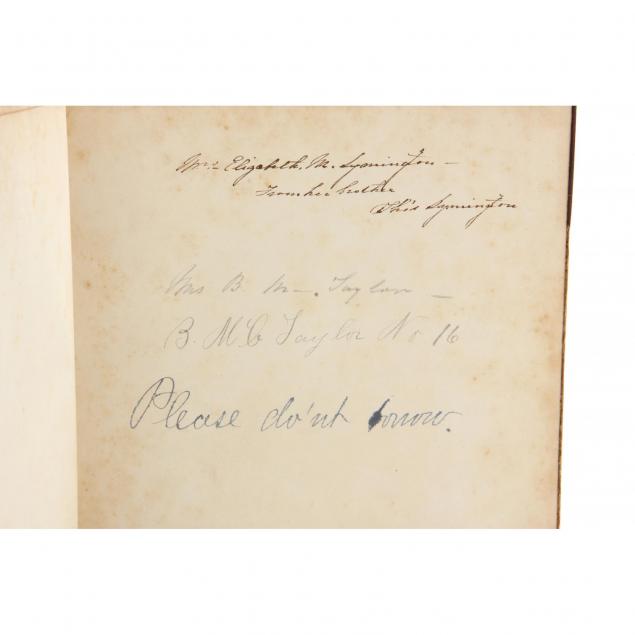 Mrs Elizabeth. M. Symington –
From her brother
Tho's Symington
Mrs B. M –. Taylor –
B. M. C Taylor No 16
Please do'nt borrow.